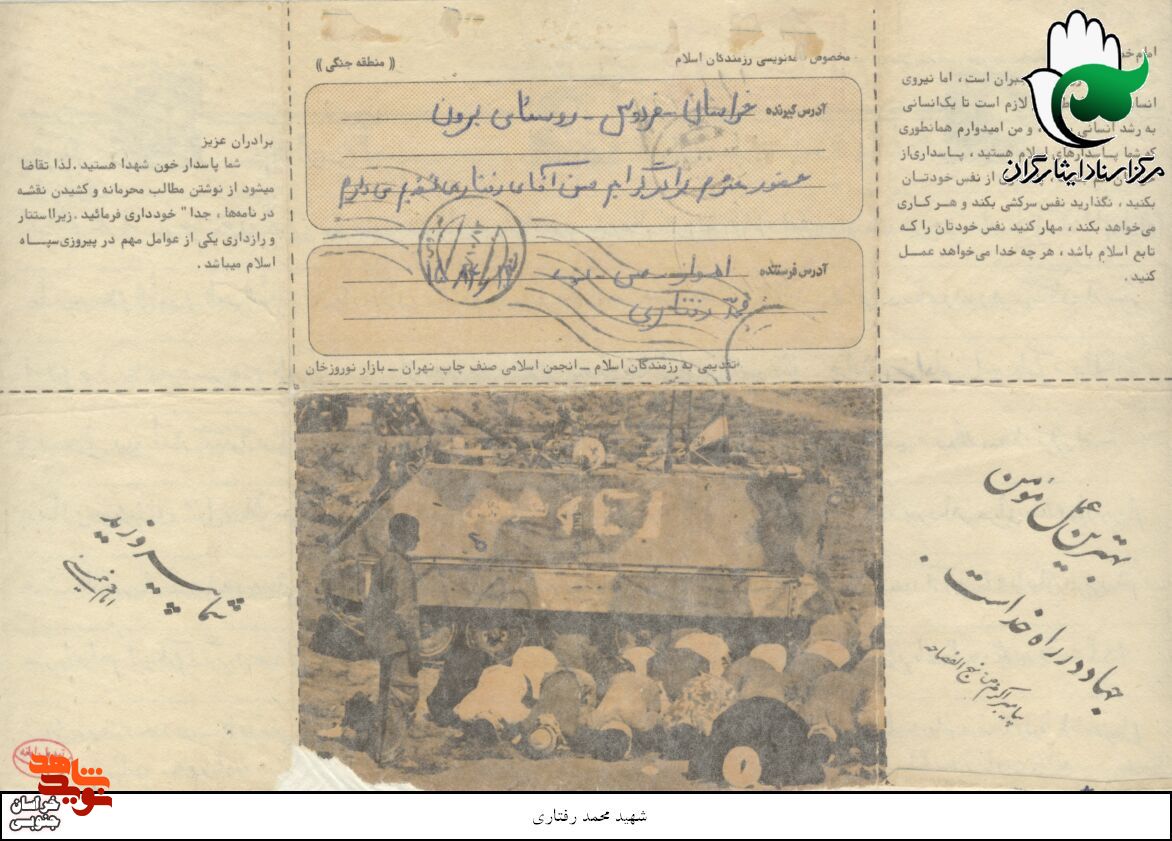 مخصوص نامه‌نویسی رزمندگان اسلام
(( منطقه جنگی ))
آدرس گیرنده خراسان - فردوس - روستای برون
حضور محترم برادر گرامیم حسن آقای رفتاری تقدیم می دارم
آدرس فرستنده اهواز
محمد رفتاری
تقدیمی به رزمندگان اسلام ــ انجمن اسلامی صنف چاپ تهران ــ بازار نوروزخان
امام خم
بران است ، اما نیروی
انسا لازم است تا یک‌انسانی
به رشد انسانی ، و من امیدوارم همانطوری
که شما پاسدارهای اسلام هستید ، پاسداری‌از
از نفس خودتان
بکنید ، نگذارید نفس سرکشی بکند و هر کاری
می‌خواهد بکند ، مهار کنید نفس خودتان را که
تابع اسلام باشد ، هر چه خدا می‌خواهد عمل
کنید .
برادران عزیز
شما پاسدار خون شهدا هستید .لذا تقاضا
میشود از نوشتن مطالب محرمانه و کشیدن نقشه
در نامه‌ها ، جدا" خودداری فرمائید . زیرااستتار
و رازداری یکی از عوامل مهم در پیروزی‌سپاه
اسلام میباشد .
بهترین عمل مومن
جهاد در راه خداست .
پیامبر اکرم ص نهج الفصاحه
شما پیروزید
امام خمینی
مرکز اسناد ایثارگران
نوید شاهد
خراسان
جنوبی
شهید محمد رفتاری